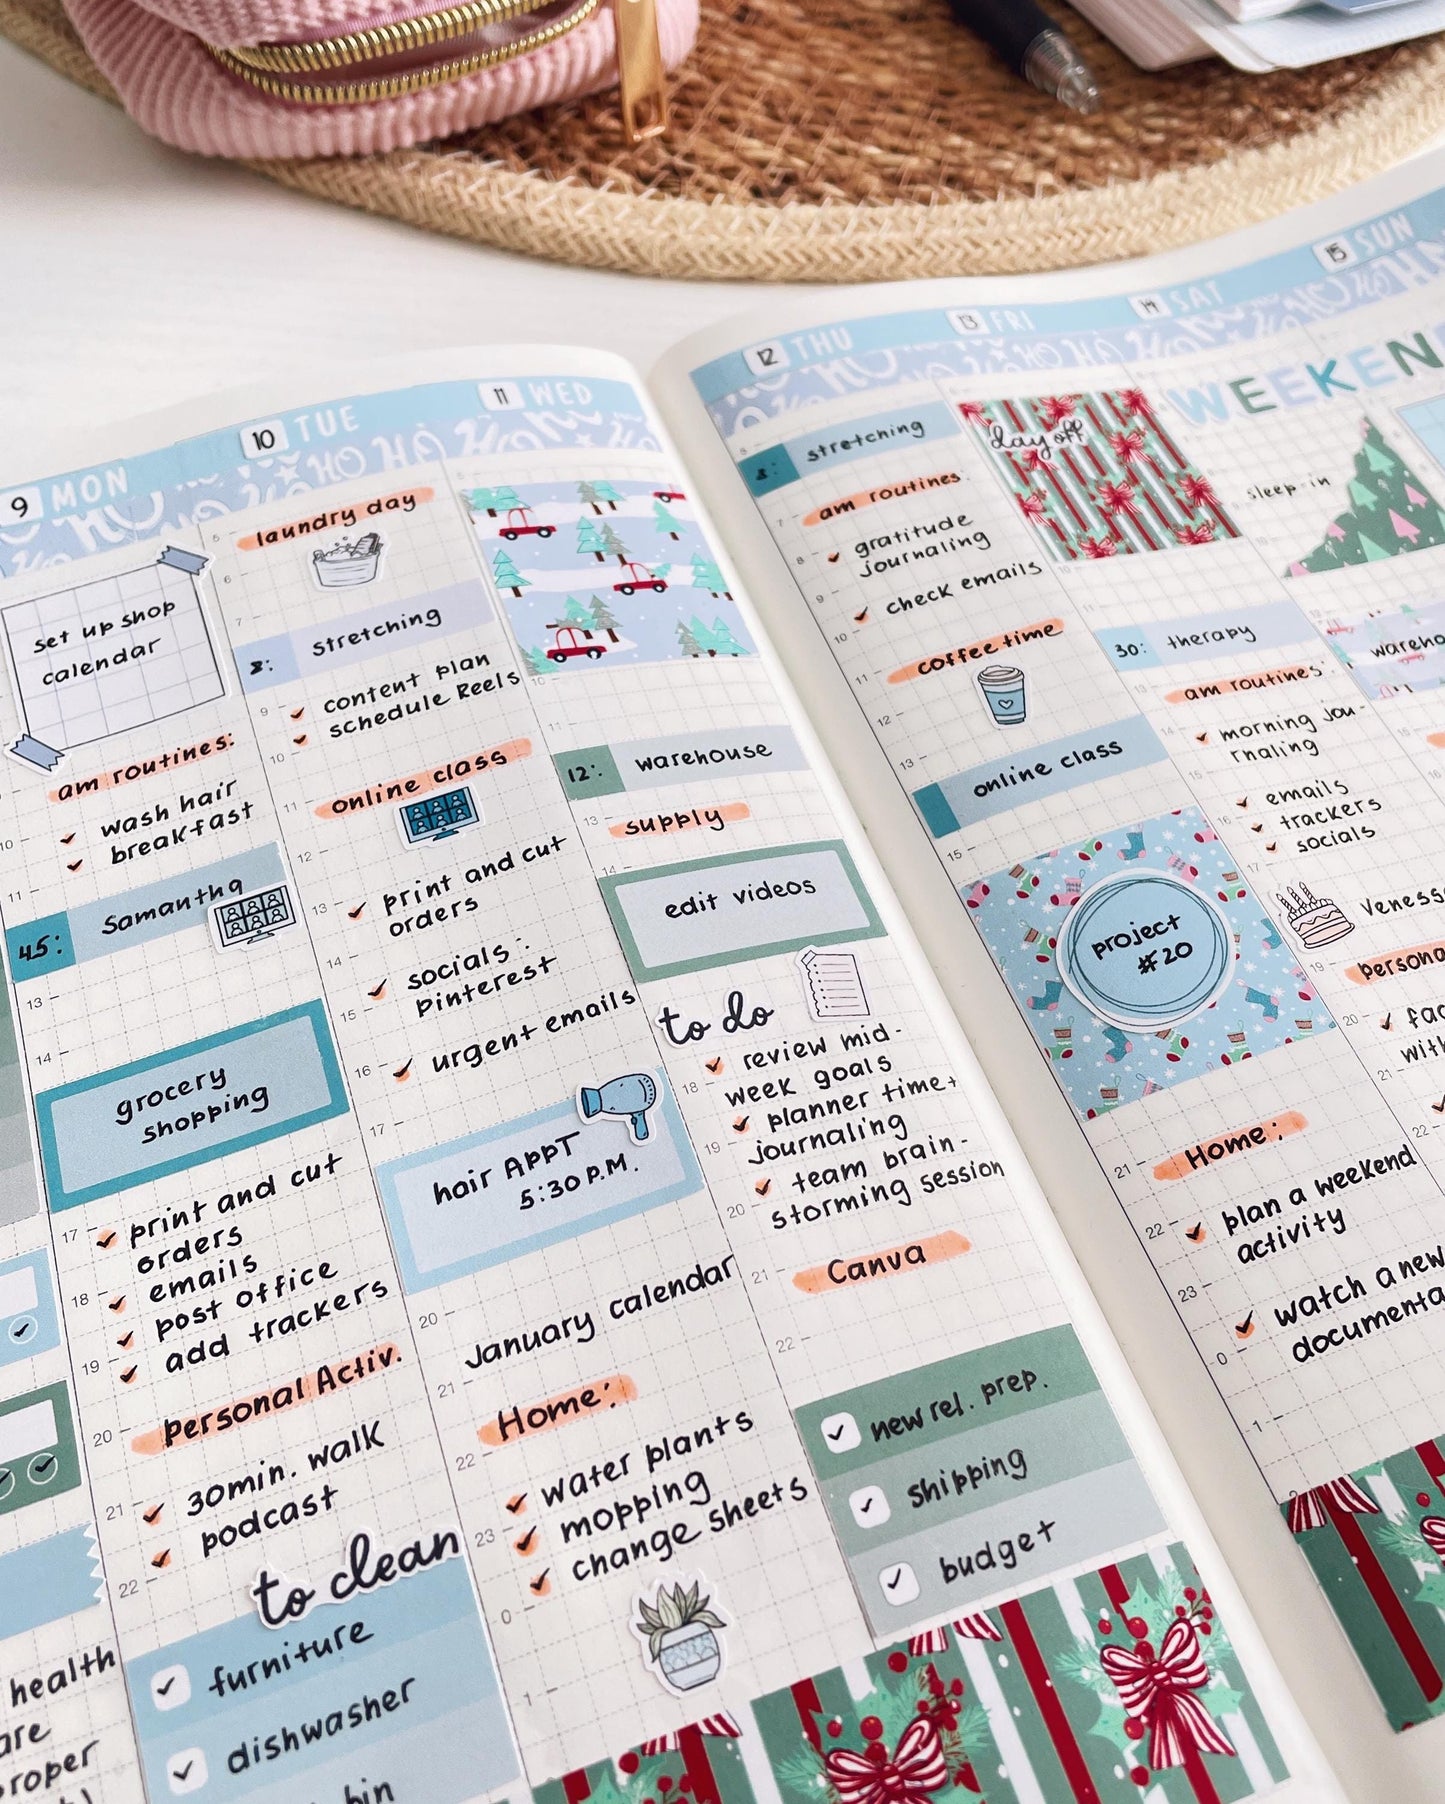 9 MON
set up shop
calendar
am routines:
wash hair
breakfast
45: Samantha
grocery
shopping
print and cut
orders
emails
post office
add trackers
Personal Activ.
30min. walk
podcast
to clean
furniture
dishwasher
bin
health
10 TUE
HO HO
laundry day
8: stretching
content plan
schedule Reels
online class
print and cut
orders
socials:
pinterest
urgent emails
hair APPT
5:30 P.M.
January calendar
Home:
water plants
mopping
change sheets
11 WED
12: warehouse
supply
edit videos
to do
review mid-
week goals
planner time+
journaling
team brain-
storming session
Canva
new rel. prep.
shipping
budget
12 THU
8: stretching
am routines:
gratitude
journaling
check emails
coffee time
online class
project
#20
Home:
plan a weekend
activity
watch a new
13 FRI
day off
30: therapy
am routines:
morning jou-
rnaling
emails
trackers
socials
14 SAT
WEEKEN
sleep-in
15 SUN